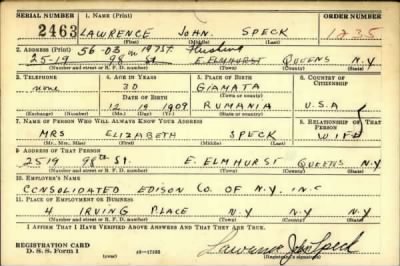 SERIAL NUMBER 1. NAME (Print) ORDER NUMBER
2463 LAWRENCE JOHN. SPECK 1235
(First) (Middle) (Last)
2. ADDRESS (Print) 56-03 197 ST. Flushing
25-19 98 St. E. ELMHURST QUEENS N.Y
(Number and street or R. F. D. number) (Town) (County) (State)
3. TELEPHONE 4. AGE IN YEARS 5. PLACE OF BIRTH 6. COUNTRY OF CITIZENSHIP
none 30 GIAMATA
DATE OF BIRTH (Town or county)
12 19 1909 RUMANIA U.S.A
(Exchange) (Number) (Mo.) (Day) (Yr.) (State or country)
7. NAME OF PERSON WHO WILL ALWAYS KNOW YOUR ADDRESS 8. RELATIONSHIP OF THAT PERSON
MRS ELIZABETH SPECK WIFE
(Mr., Mrs., Miss) (First) (Middle) (Last)
9. ADDRESS OF THAT PERSON
2519 98TH St. E. ELMHURST QUEENS N.Y
(Number and street or R. F. D. number) (Town) (County) (State)
10. EMPLOYER'S NAME
CONSOLIDATED EDISON CO. OF N.Y. INC
11. PLACE OF EMPLOYMENT OR BUSINESS
4 IRVING PLACE N.Y N.Y N.Y
(Number and street or R. F. D. number) (Town) (County) (State)
I AFFIRM THAT I HAVE VERIFIED ABOVE ANSWERS AND THAT THEY ARE TRUE.
REGISTRATION CARD
D. S. S. Form 1 (over) Lawrence John Speck
(Registrant's signature)